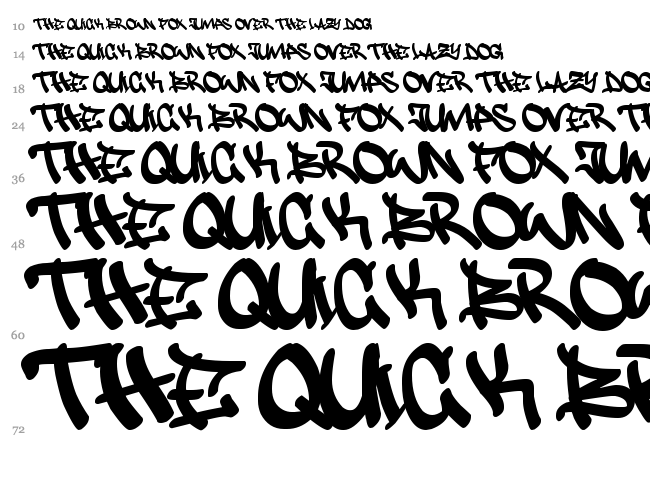 10 THE QUICK BROWN FOX JUMPS OVER THE LAZY DOG
14 THE QUICK BROWN FOX JUMPS OVER THE LAZY DOG
18 THE QUICK BROWN FOX JUMPS OVER THE LAZY DOG
24 THE QUICK BROWN FOX JUMPS OVER T
36 THE QUICK BROWN FOX JUM
48 THE QUICK BROWN
60 THE QUICK BRO
72 THE QUICK B